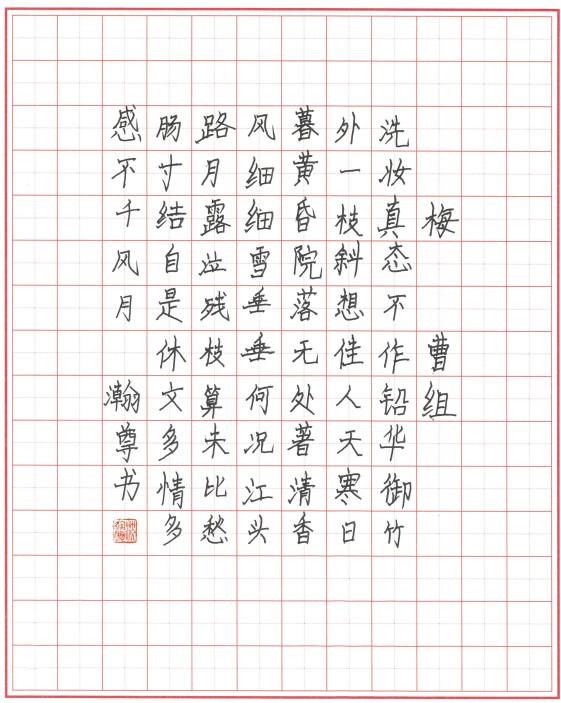 梅 曹组
洗妆真态不作铅华御竹
外一枝斜想佳人天寒日
暮黄昏院落无处著清香
风细细雪垂垂何况江头
路月露泣残枝算未比愁
肠寸结自是休文多情多
感不千风月 瀚尊书